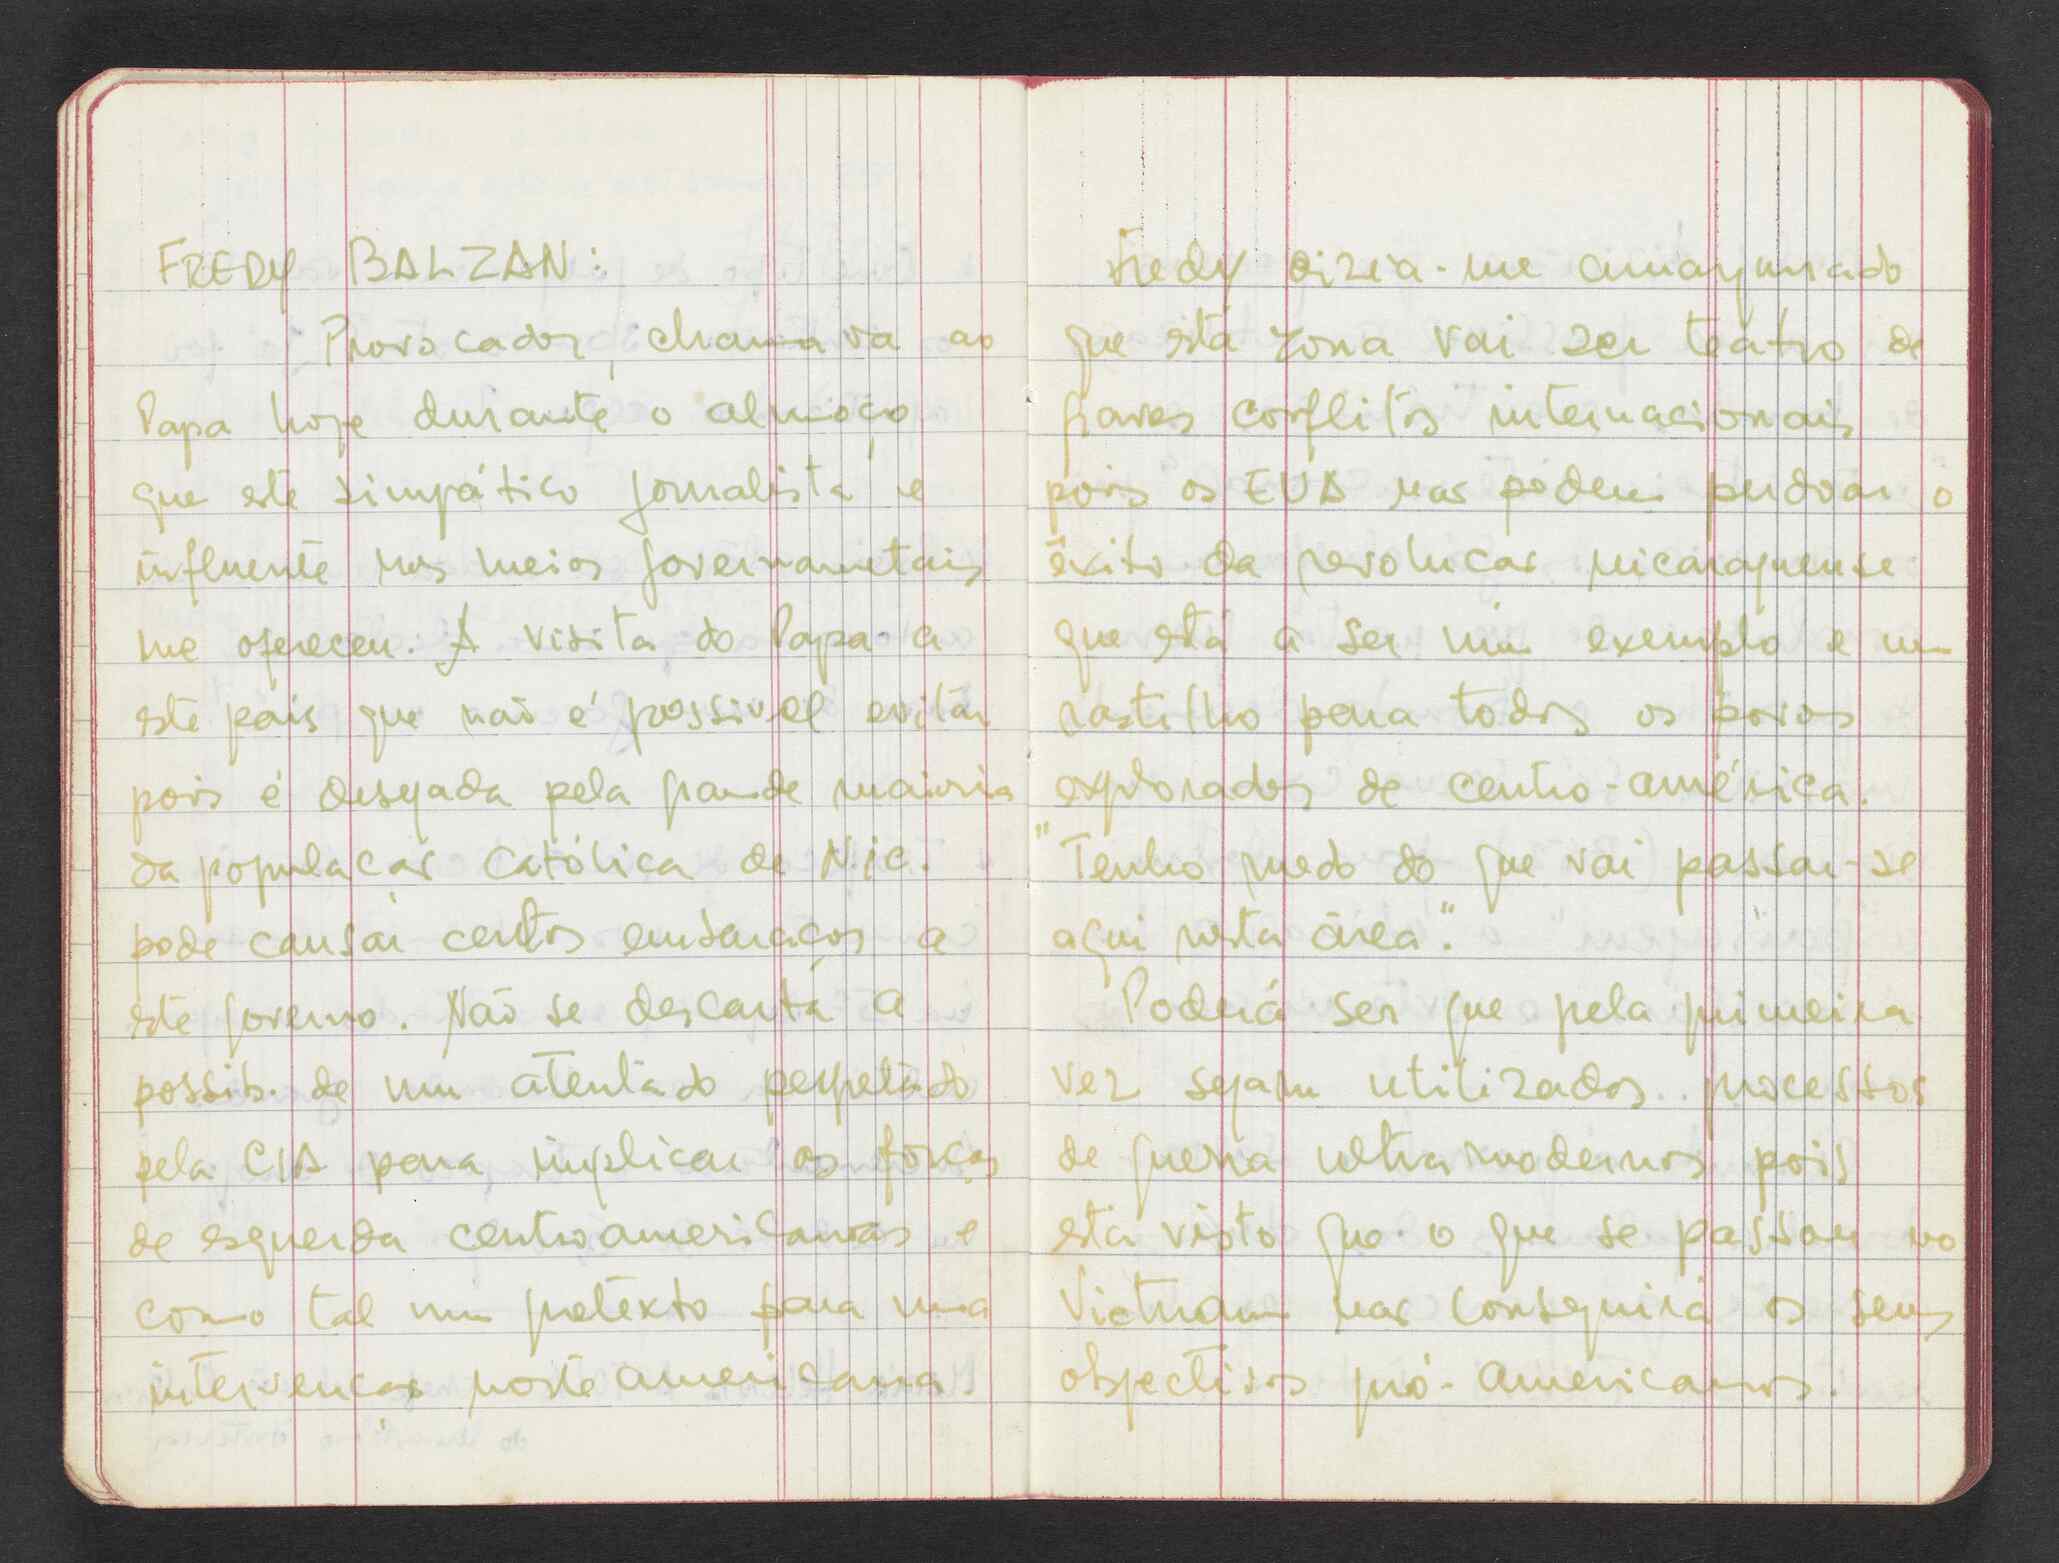 FREDY BALZAN:
Provocador, chamava ao
Papa hoje durante o almoço
que este simpático jornalista e
influente nos meios governamentais
me ofereceu. A visita do Papa a
este país que não é possivel evitar
pois é desejada pela grande maioria
da populacão católica de Nic.
pode causar certos embaraços a
este governo. Não se descarta a
possib. de um atentado perpetado
pela CIA para implicar as forças
de esquerda centroamericanas e
como tal um pretexto para uma
intervenção norte americana.
Fredy dizia-me amargurado
que esta zona vai ser teatro de
graves conflitos internacionais
pois os EUA nao podem perdoar o
êxito da revolucao nicaraguense
que está a ser um exemplo e um
rastilho para todos os povos
explorados de centro-américa.
"Tenho medo do que vai passar-se
aqui nesta área".
Poderá ser que pela primeira
vez sejam utilizados processos
de guerra ultra modernos pois
está visto que o que se passou no
Vietnam nao conseguirá os seus
objectivos pró-americanos.